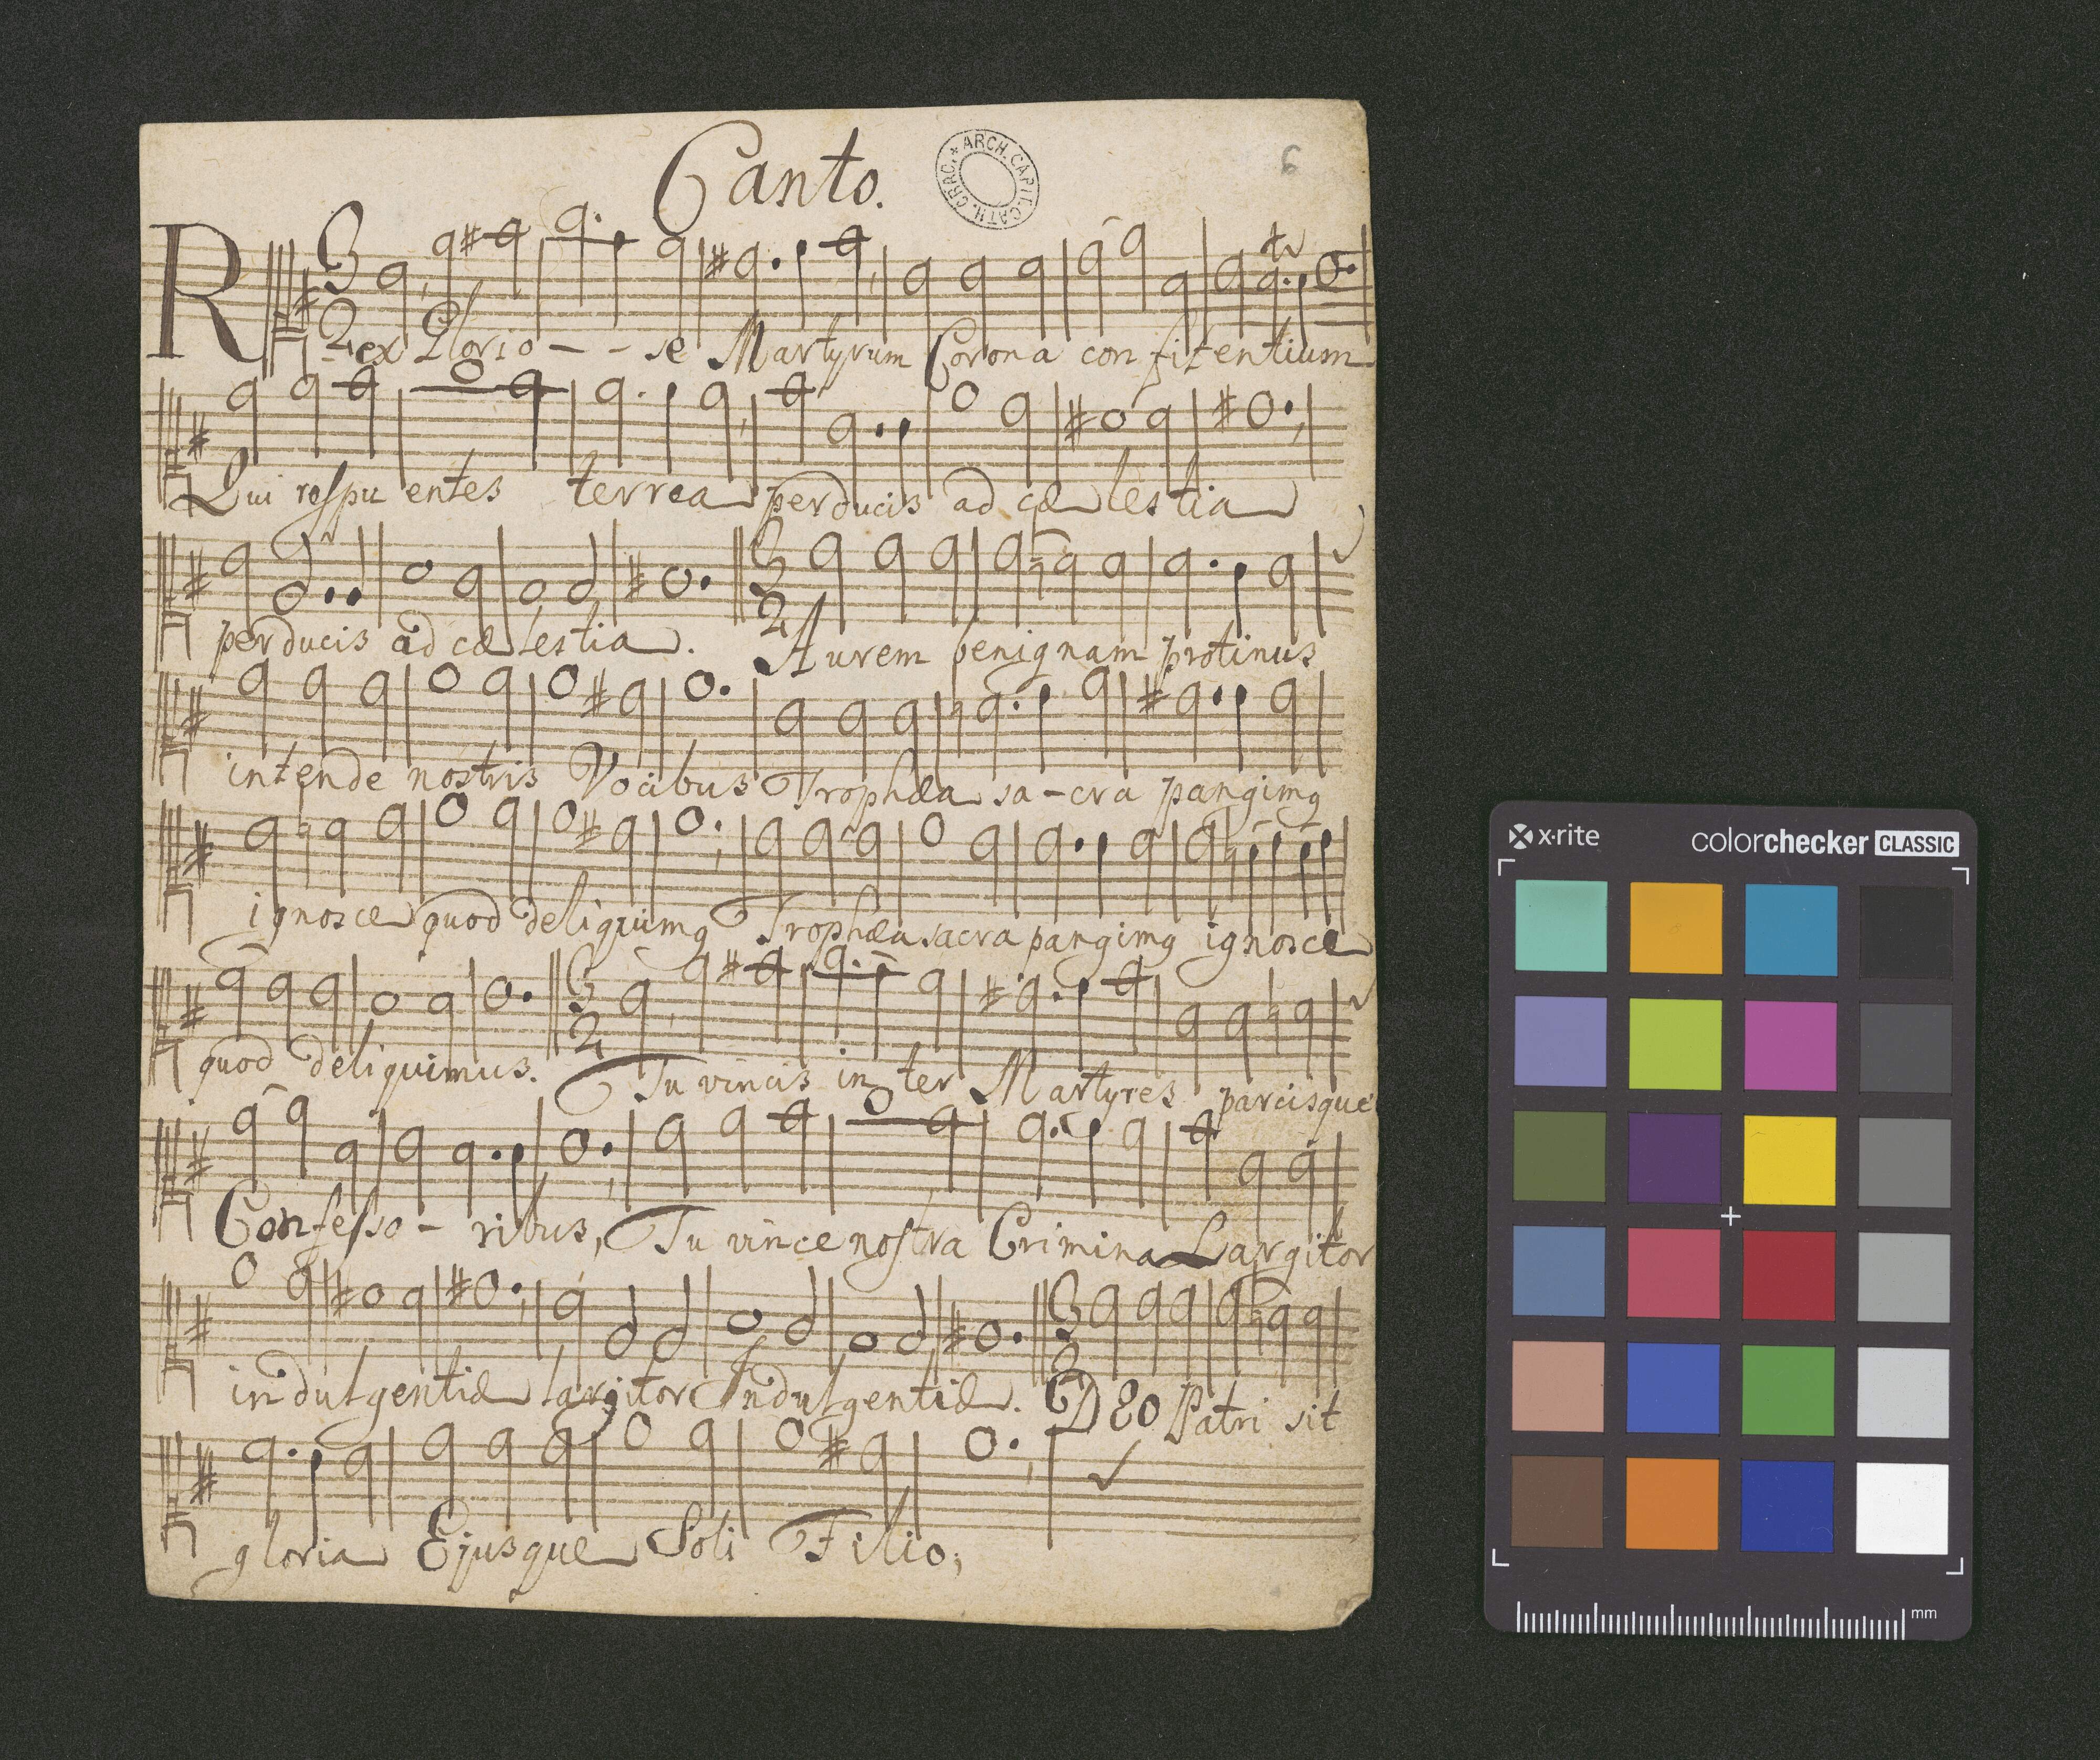 Canto.
ARCH. CAPIT. CATH. CRAC. *
6
3
2
Rex Glorio - - se Martyrum Corona confitentium
Qui respu entes terrea perducis ad cælestia
perducis ad cælestia.
3
2
Aurem benignam protinus
intende nostris Vocibus Trophæa sa-cra pangimꝰ
ignosce quod deliquimꝰ Trophæa sacra pangimꝰ ignosce
quod deliquimus.
3
2
Tu vincis in ter Martyres parcisque
Confesso - ribus, Tu vince nostra Crimina Largitor
indulgentiæ largitor Indulgentiæ.
3
2
DEO Patri sit
gloria Ejusque Soli Filio;
x-rite
colorchecker CLASSIC
mm